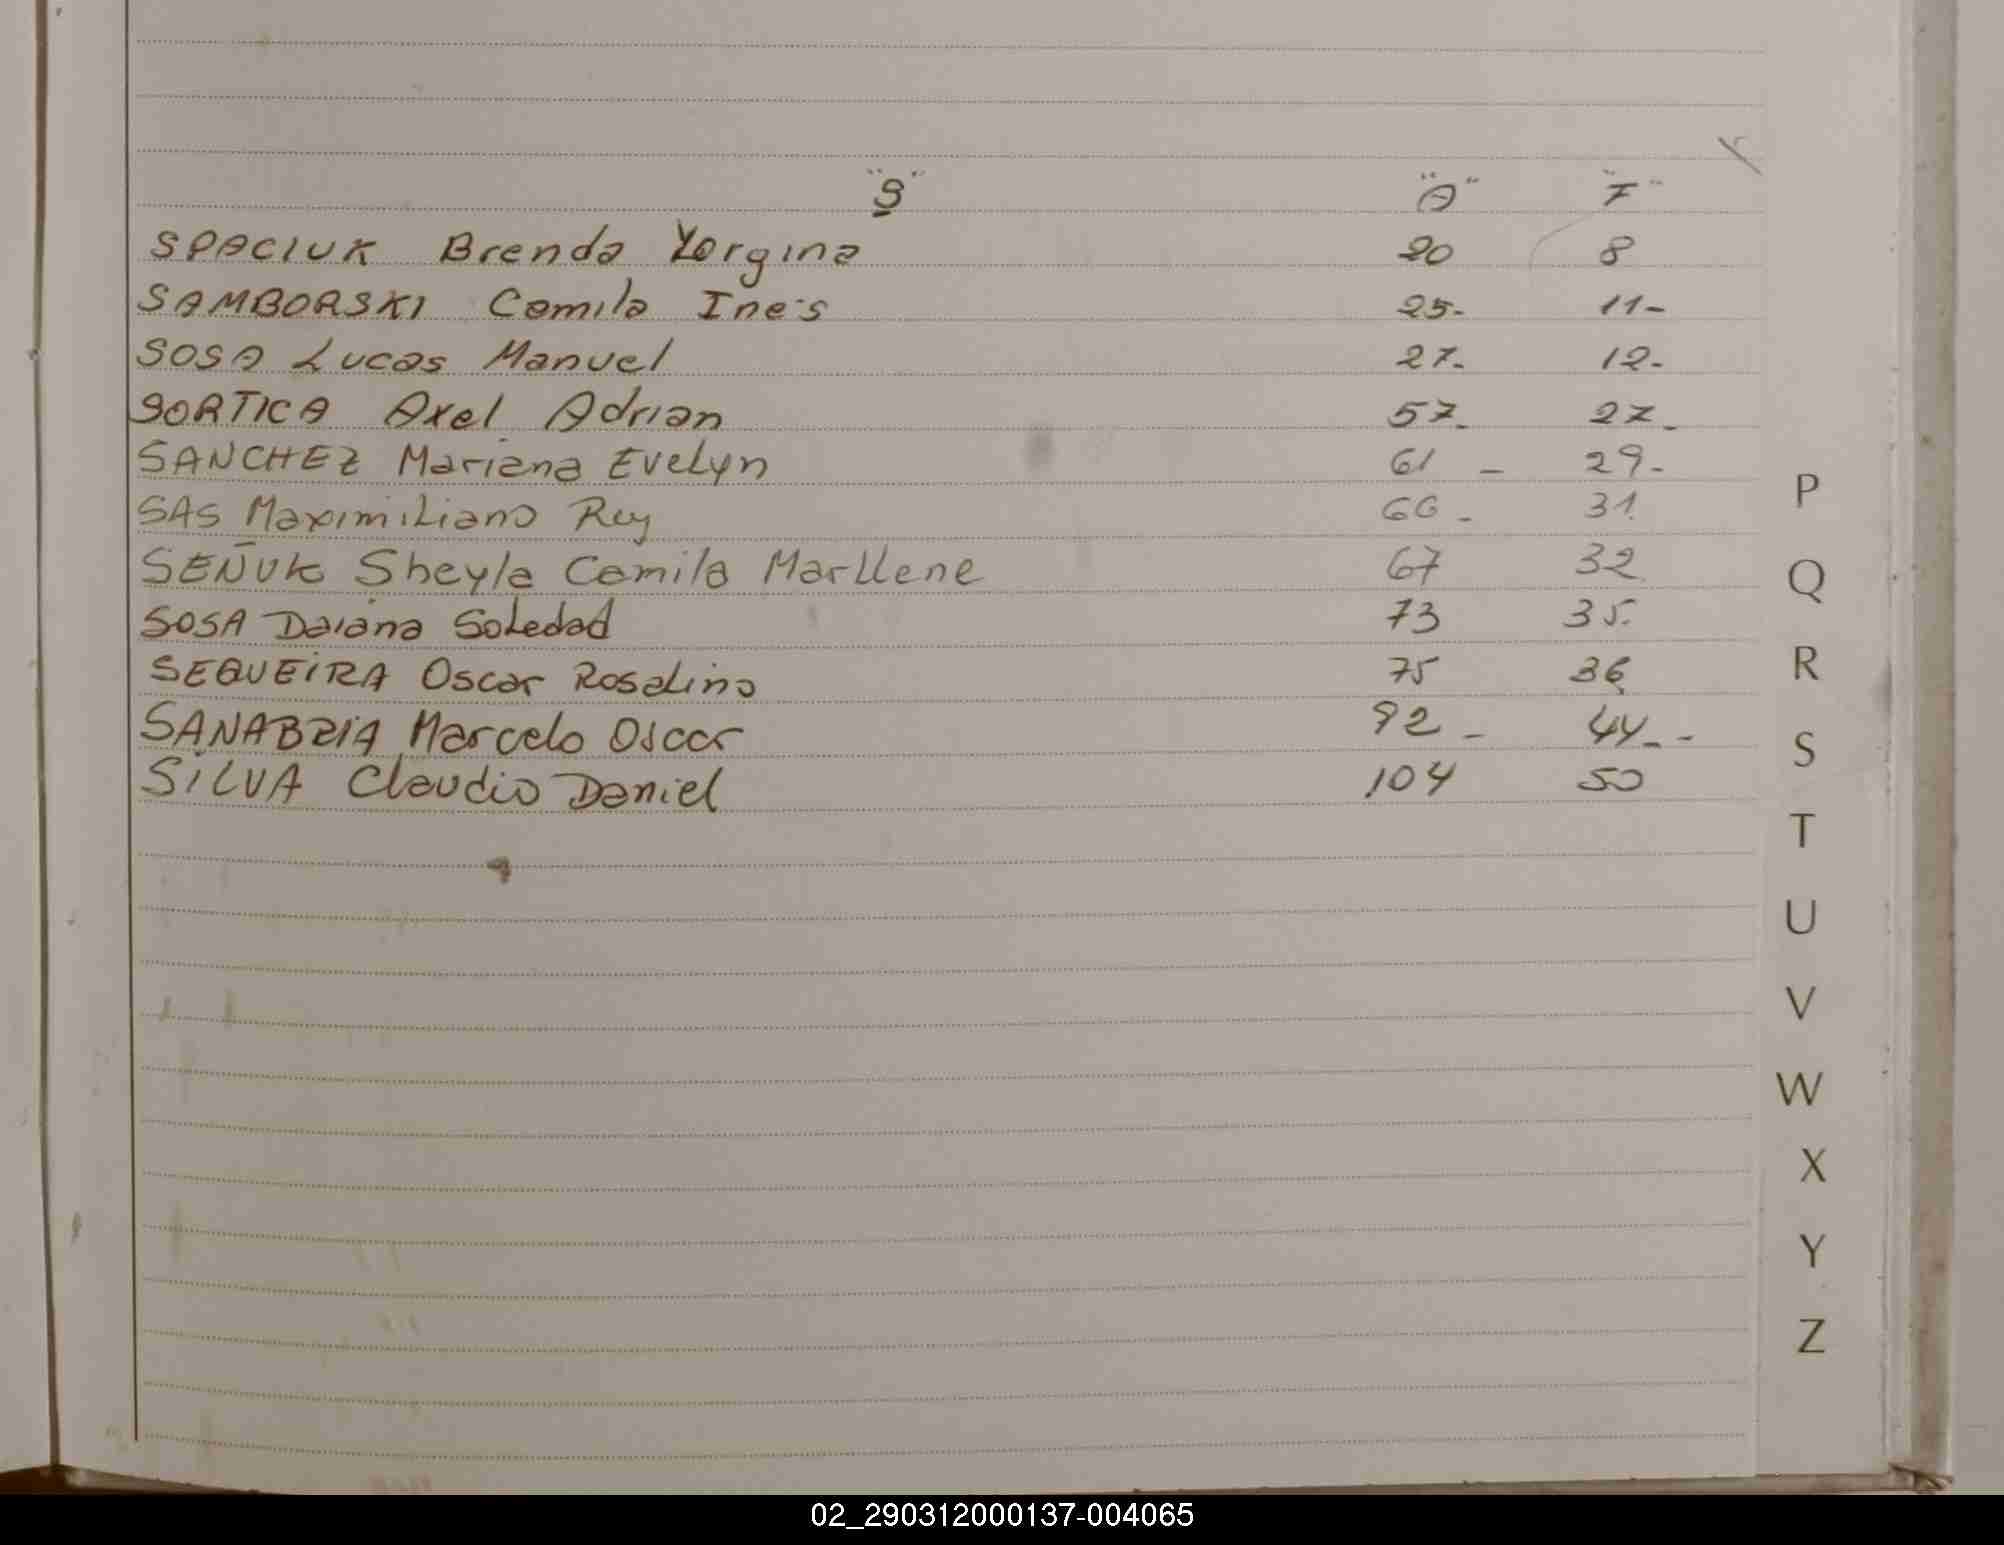 "S" "A" "F"
SPACIUK Brenda Yorgina 20 8
SAMBORSKI Camila Ines 25- 11-
SOSA Lucas Manuel 27- 12-
SORTICA Axel Adrian 57- 27-
SANCHEZ Mariana Evelyn 61 - 29-
SAS Maximiliano Rey 66- 31.
SEÑUK Sheyla Camila Marllene 67 32
SOSA Daiana Soledad 73 35.
SEQUEIRA Oscar Rosalino 75 36
SANABRIA Marcelo Oscar 92 - 44--
SILVA Claudio Daniel 104 50
P
Q
R
S
T
U
V
W
X
Y
Z
02_290312000137-004065